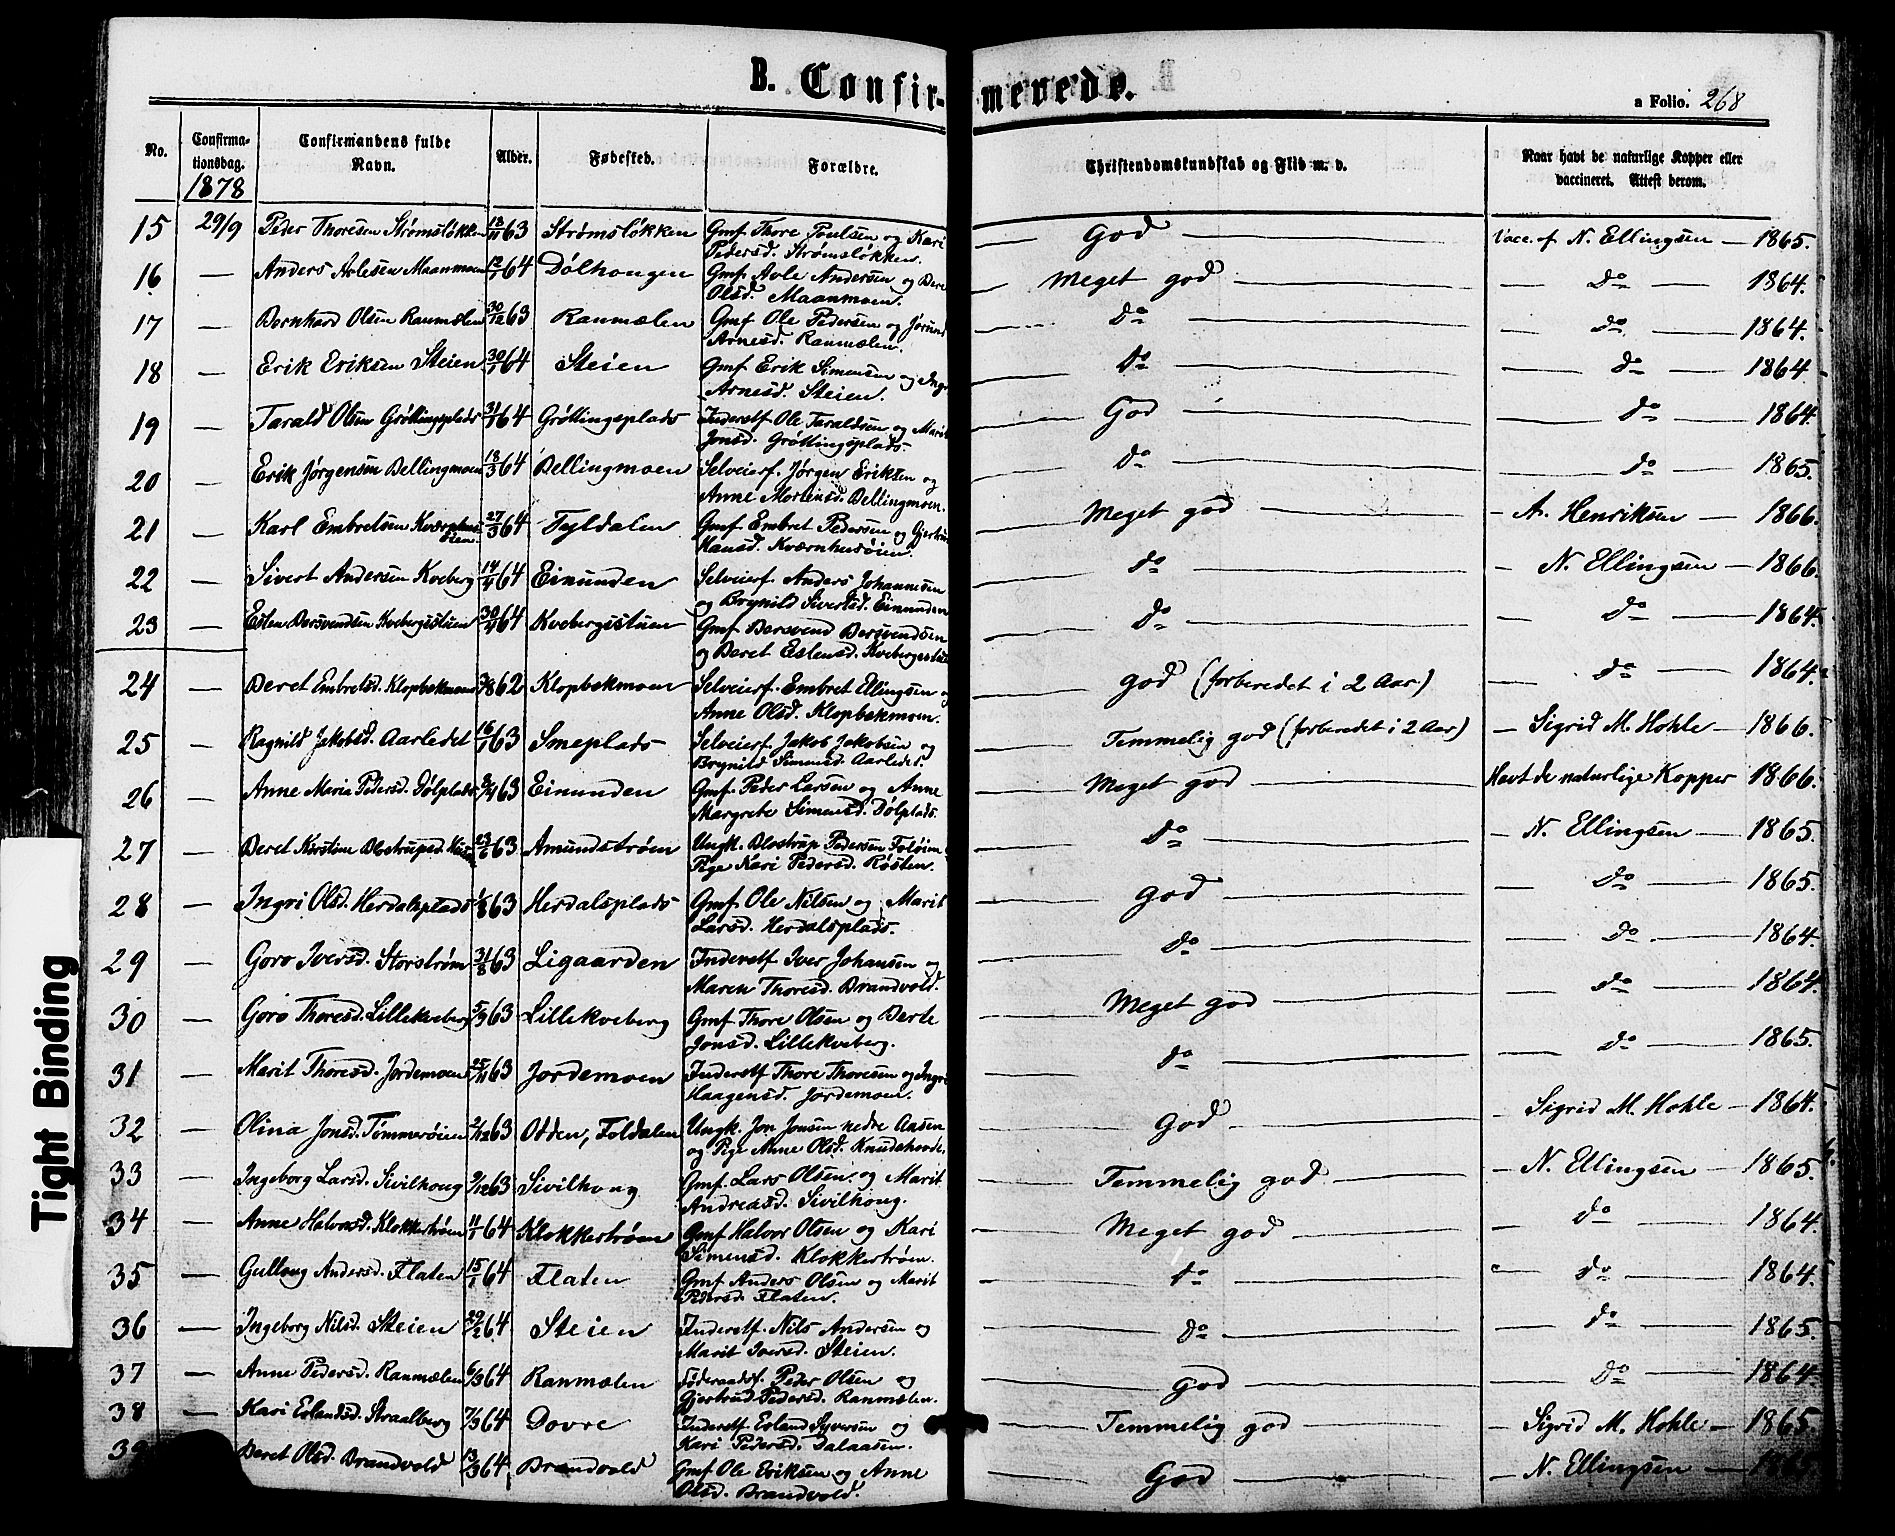 B. Confirmerede.
a Folio. 268
No. Confirmationsdag. Confirmandens fulde Navn. Alder. Fødested. Forældre. Christendomskundskab og Flid m. v. Naar havt de naturlige Kopper eller vaccineret. Attest derom.
1878
15 29/9 Peder Thoresen Strømsløkken 13/11 63 Strømsløkken Gmf Thore Poulsen og Kari God Vacc. af N. Ellingsen — 1865.
Pedersd. Strømsløkken.
16 — Anders Avlesen Maanmoen 12/1 64 Dølhougen Gmf. Avle Andersen og Bere Meget god do 1864.
Olsd. Maanmoen.
17 — Bernhard Olsen Ranmælen 30/12 63 Ranmælen Gmf Ole Pedersen og Jørund do do 1864.
Arnesd. Ranmælen.
18 — Erik Eriksen Steien 30/1 64 Steien Gmf Erik Simensen og Ingr do do 1864
Arnesd. Steien.
19 — Tarald Olsen Grøttingsplads 31/1 64 Grøttingsplads Inderstf Ole Taraldsen og Marit God do 1864.
Jonsd. Grøttingsplads.
20 — Erik Jørgensen Bellingmoen 18/3 64 Bellingmoen Selveierf. Jørgen Eriksen og do do 1865.
Anne Mortensd. Bellingmoen.
21 — Karl Embretsen Kværnhusøien 27/3 64 Tyldalen Gmf. Embret Pedersen og Gjertru Meget god A. Henriksen — 1866.
Hansd. Kværnhusøien.
22 — Sivert Andersen Kveberg 14/4 64 Einunden Selveierf. Anders Johannesen do N. Ellingsen — 1866.
og Brynild Sivertsd. Einunden
23 — Esten Bersvendsen Kvebergsstuen 30/4 64 Kvebergsstuen Gmf Bersvend Bersvendsen do do 1864.
og Beret Estensd. Kvebergsstu
24 — Beret Embretsd. Klopbekmoen 3/8 62 Klopbekmoen Selveierf. Embret Ellingsen og god (forberedet i 2 Aar) do 1864.
Anne Olsd. Klopbekmoen.
25 — Ragnild Jakobsd. Aarledet 16/1 63 Smeplads Selveierf. Jakob Jakobsen og Temmelig god (forberedet i 2 Aar) Sigrid M. Hohle — 1866.
Brynild Simensd. Aarledet.
26 — Anne Maria Pedersd. Dølplads 3/4 63 Einunden Gmf. Peder Larsen og Anne Meget god Havt de naturlige Kopper 1866.
Margrete Simensd. Dølplads.
27 — Beret Kirstine 23/6 63 Amundstrøen Ungk. Pedersen do N. Ellingsen — 1865.
Pige Kari Pedersd. Røsten.
28 — Ingri Olsd. Herdalsplads 1/8 63 Herdalsplads Gmf Ole Nilsen og Marit God do 1865.
Larsd. Herdalsplads.
29 — Goro Iversd. Storstrøm 31/8 63 Ligaarden Inderstf Iver Johansen og do do 1864.
Maren Thoresd. Brandvold.
30 — Goro Thoresd. Lillekveberg 5/9 63 Lillekveberg Gmf Thore Olsen og Berte Meget god do 1864.
Jonsd. Lillekveberg.
31 — Marit Thoresd. Jordemoen 25/11 63 Jordemoen Inderstf Thore Thoresen og Ingri do do 1865.
Haagensd. Jordemoen.
32 — Olina Jonsd. Tømmerøien 2/12 63 Odden, Foldalen Ungk. Jon Jonsen nedre Aasen God Sigrid M. Hohle — 1864.
og Pige Anne Olsd. Knudshorde.
33 — Ingeborg Larsd. Sivilhoug 9/12 63 Sivilhoug Gmf. Lars Olsen og Marit Temmelig god N. Ellingsen — 1865.
Andreasd. Sivilhoug.
34 — Anne Halvorsd. Klokkerstrøen 11/1 64 Klokkerstrøen Gmf Halvor Olsen og Kari Meget god do 1864.
Simensd. Klokkerstrøen.
35 — Gulloug Andersd. Flaten 15/1 64 Flaten Gmf Anders Olsen og Marit do do 1864.
Pedersd Flaten.
36 — Ingeborg Nilsd. Steien 29/2 64 Steien Inderstf. Nils Andersen og do do 1865.
Marit Iversd. Steien.
37 — Anne Pedersd. Ranmælen 6/3 64 Ranmælen Føderaadsf. Peder Olsen og God do 1864.
Gjertrud Pedersd. Ranmælen.
38 — Kari Erlandsd. Straalberg 7/3 64 Dovre Inderstf Erland Syversen og Temmelig god Sigrid M. Hohle — 1865.
Kari Pedersd. Dalaasen.
39 Beret Olsd. Brandvold 13/3 64 Brandvold Gmf Ole Eriksen og Anne God N. Ellingsen — 1865.
Olsd. Brandvold.
Tight Binding